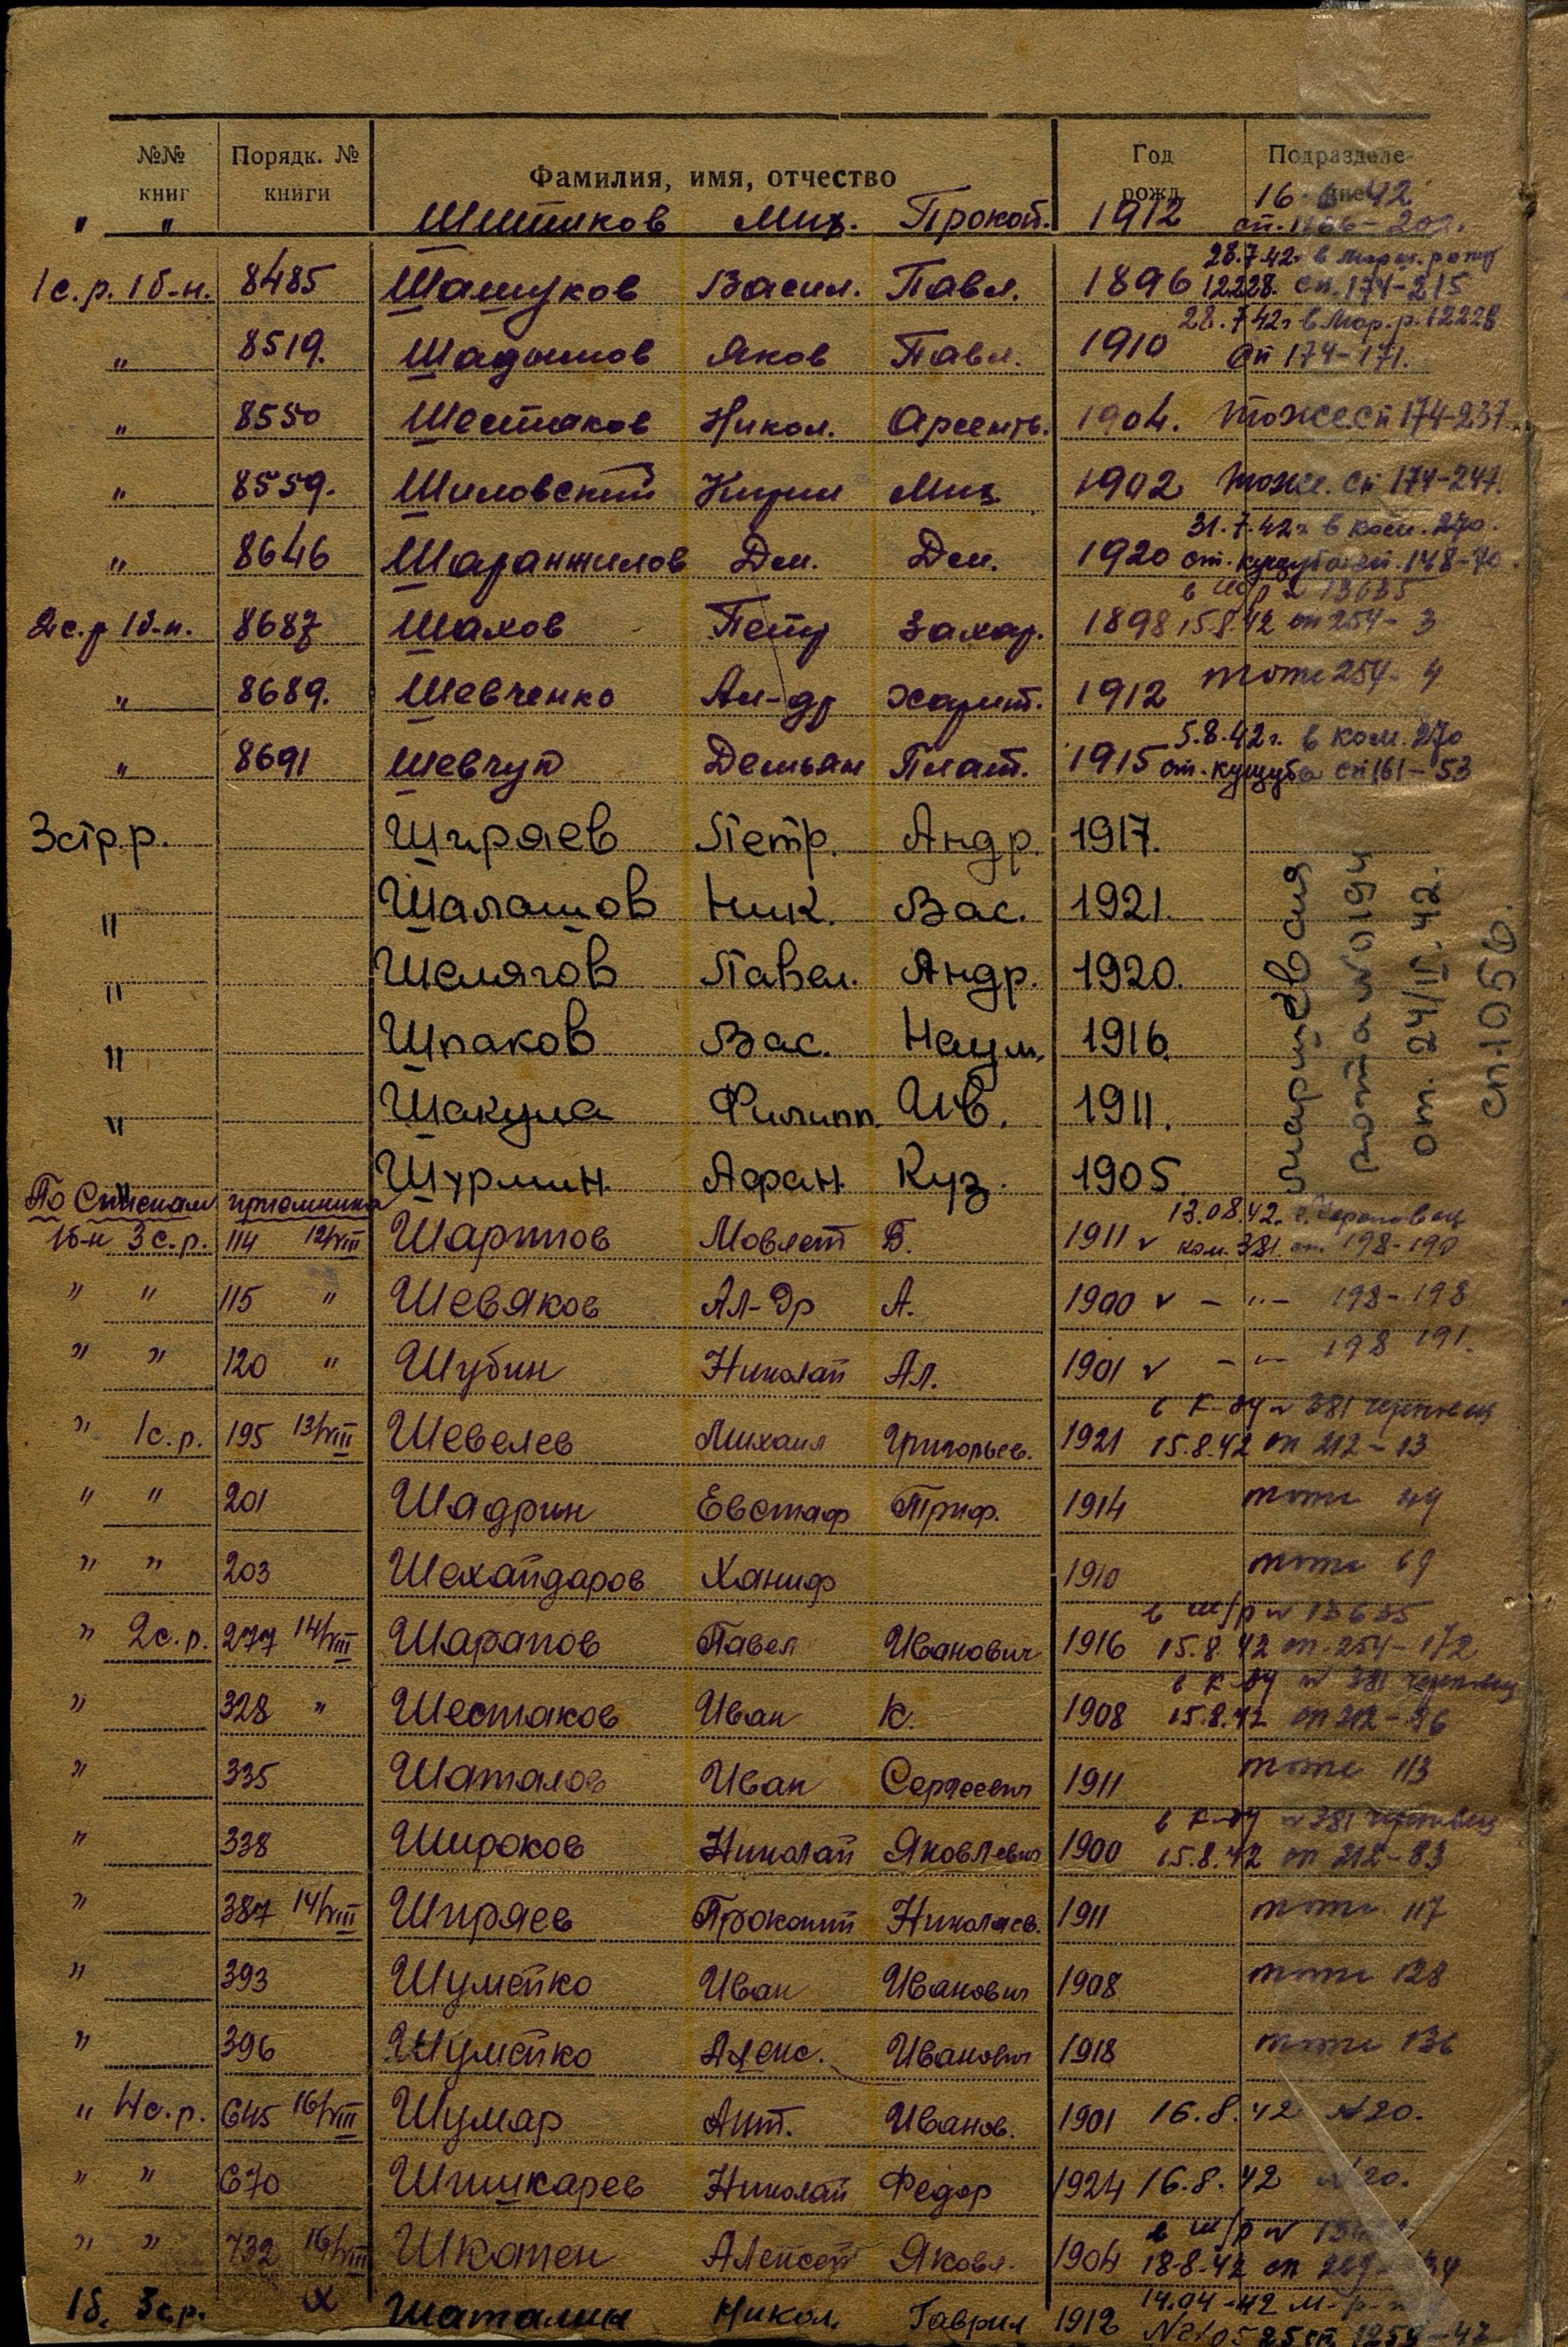 №№ книг Порядк. № книги Фамилия, имя, отчество Год рожд. Подразделение
" " Шитиков Мих. Прокоп. 1912 16. 42
1с.р. 1б-н. 8485 Шашуков Васил. Павл. 1896 28.7.42г в марш. роту 12228. сп. 174-215
" 8519. Шадымов Яков Павл. 1910 28.7.42г в мар. р. 12228 сп 174-171.
" 8550 Шестаков Никол. Арсенть. 1904. тоже сп 174-237
" 8559. Шиловский Кирил Мих. 1902 тоже. сп 174-247.
" 8646 Шаранжилов Дм. Дм. 1920 31.7.42г в ком. 270. ст. кущуба сп. 148-70.
2с.р 1б-н. 8687 Шахов Петр Захар. 1898 в ш/р № 13635 15.8.42 сп 254-3
" 8689. Шевченко Ал-др Харит. 1912 тоже 254-4
" 8691 Шевчук Демьян Плат. 1915 5.8.42г. в ком. 270 ст. кущуба сп 161-53
3стр.р. Ширяев Петр. Андр. 1917.
" Шалашов Ник. Вас. 1921.
" Шелягов Павел. Андр. 1920.
" Шпаков Вас. Наум. 1916.
" Шакула Филипп. Ив. 1911.
Шурмин. Афан. Куз. 1905.
маршевая рота № 0194 от. 24/II.42. сп. 1056.
По Спискам приемника
1б-н 3с.р. 114 12/VIII Шарипов Мовлет Б. 1911 v 13.08.42. г. Череповец ком. 381. сп. 198-190
" " 115 " Шевяков Ал-др А. 1900 v - " - 198-198
" " 120 " Шубин Николай Ал. 1901 v - " - 198 191.
" 1с.р. 195 13/VIII Шевелев Михаил Григорьев. 1921 в К-ду № 381 череповец 15.8.42 сп 212-13
" " 201 Шадрин Евстаф Триф. 1914 тоже 49
" " 203 Шехайдаров Ханиф 1910 тоже 69
" 2с.р. 277 14/VIII Шарапов Павел Иванович 1916 в ш/р № 13635 15.8.42 сп. 254-172
" 328 " Шестаков Иван К. 1908 в К-ду № 381 череповец 15.8.42 сп 212-96
" 335 Шаталов Иван Сергеевич 1911 тоже 113
" 338 Широков Николай Яковлевич 1900 в К-ду № 381 череповец 15.8.42 сп 212-83
" 387 14/VIII Ширяев Прокопий Николаев. 1911 тоже 117
" 393 Шумейко Иван Иванович 1908 тоже 128
" 396 Шумейко Алекс. Иванович 1918 тоже 136
" 4с.р. 645 16/VIII Шумар Ант. Иванов. 1901 16.8.42 №20.
" " 670 Шишкарев Николай Федор 1924 16.8.42 №20.
" " 732 16/VIII Шкатен Алексей Яковл. 1904 в ш/р № 18.8.42 сп
1б. 3с.р. х Шаталин Никол. Гаврил 1912 14.04-42